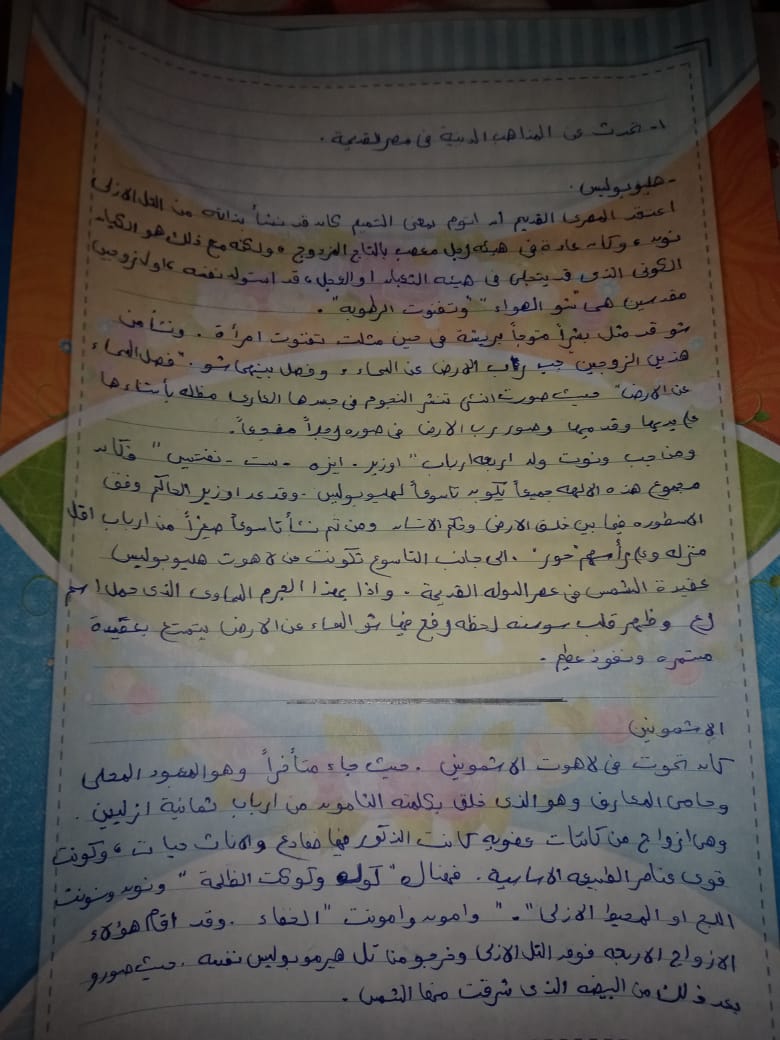 ١- تحدث عن المذاهب الدينية فى مصر القديمة .
- هليوبوليس .
اعتقد المصرى القديم أن اتوم بمعنى التميم كان قد نشأ بذاته من التل الازلى
نون ، وكان عادة فى هيئه رجل معصب بالتاج المزدوج ، ولكنه مع ذلك هو الكيان
الكونى الذى قد يتجلى فى هيئه الثعبان او العجل ، قد استولد نفسه ، اول زوجين
مقدسين هى "شو الهواء" "وتفنوت الرطوبه" .
شو قد مثل بشراً متوجاً بريشة فى حين مثلت تفنوت امرأة . ونشأ من
هذين الزوجين جب رب الارض عن السماء ، وفصل بينهما شو . "فصل السماء
عن الارض" حيث صورت انثى تنشر النجوم فى جسدها العارى مظله بأستاءها
على يديها وقدميها وصور رب الارض فى صوره رجلاً مضجعاً .
ومن جب ونوت ولد اربعه ارباب "اوزير . ايزه - ست - نفتيس" فكان
مجموع هذه الالهه جميعاً يكون تاسوعاً لهليوبوليس . وقد عد اوزير الحاكم وفق
الاسطوره فيما بين خلق الارض وحكم الانسان ومن ثم نشأ تاسوعاً صغيراً من ارباب اقل
منزله وعلى رأسهم "حور" . الى جانب التاسوع تكونت من لاهوت هليوبوليس
عقيدة الشمس فى عصر الدوله القديمة . واذا بهذا الجرم السماوى الذى حمل اسم
رع وظهر قلب سوسنه لحظه رفع فيها شو السماء عن الارض يتمتع بعقيدة
مستمره ونفوذ عظيم .
الاشمونين
كان تحوت فى لاهوت الاشمونين . حيث جاء متأخراً وهو المعبود المحلى
وحامى المعارف وهو الذى خلق بكلمته الثامون من ارباب ثمانية ازليين .
وهى ازواج من كائنات عضويه كانت الذكور فيها ضفادع والاناث حيات ، وكونت
قوى عناصر الطبيعه الاساسية . فهناك "كوك وكوكت الظلمة" ونون ونونت
اللج او المحيط الازلى" . "وامون وامونت "الخفاء . وقد اقام هؤلاء
الازواج الاربعه فوق التل الازلى وخرجو منا تل هيرموبوليس نفسه . حيث صورو
بعد ذلك من البيضه الذى شرقت منها الشمس .